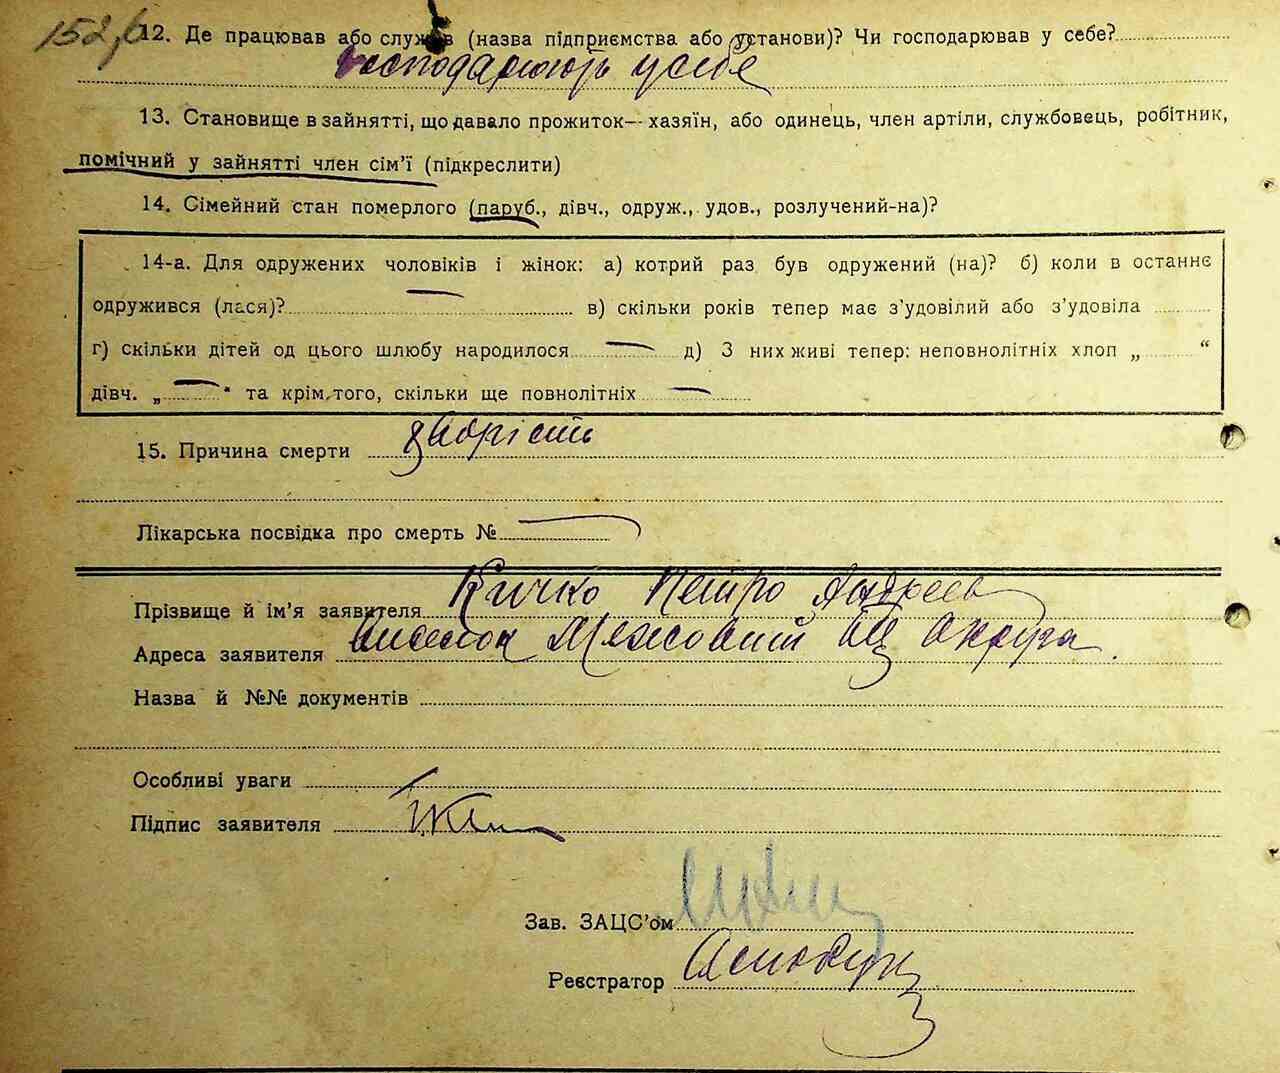 152,б
12. Де працював або служив (назва підприємства або установи)? Чи господарював у себе?
господарюють у себе
13. Становище в зайнятті, що давало прожиток—хазяїн, або одинець, член артіли, службовець, робітник,
помічний у зайнятті член сім'ї (підкреслити)
14. Сімейний стан померлого (паруб., дівч., одруж., удов., розлучений-на)?
14-а. Для одружених чоловіків і жінок: а) котрий раз був одружений (на)? б) коли в останнє
одружився (лася)? — в) скільки років тепер має з'удовілий або з'удовіла
г) скільки дітей од цього шлюбу народилося — д) З них живі тепер: неповнолітніх хлоп „ “
дівч. „ — “ та крім того, скільки ще повнолітніх —
15. Причина смерти
Лікарська посвідка про смерть № —
Прізвище й ім'я заявителя Кичко Петро Андреев
Адреса заявителя Округа
Назва й №№ документів
Особливі уваги
Підпис заявителя
Зав. ЗАЦС'ом
Реєстратор